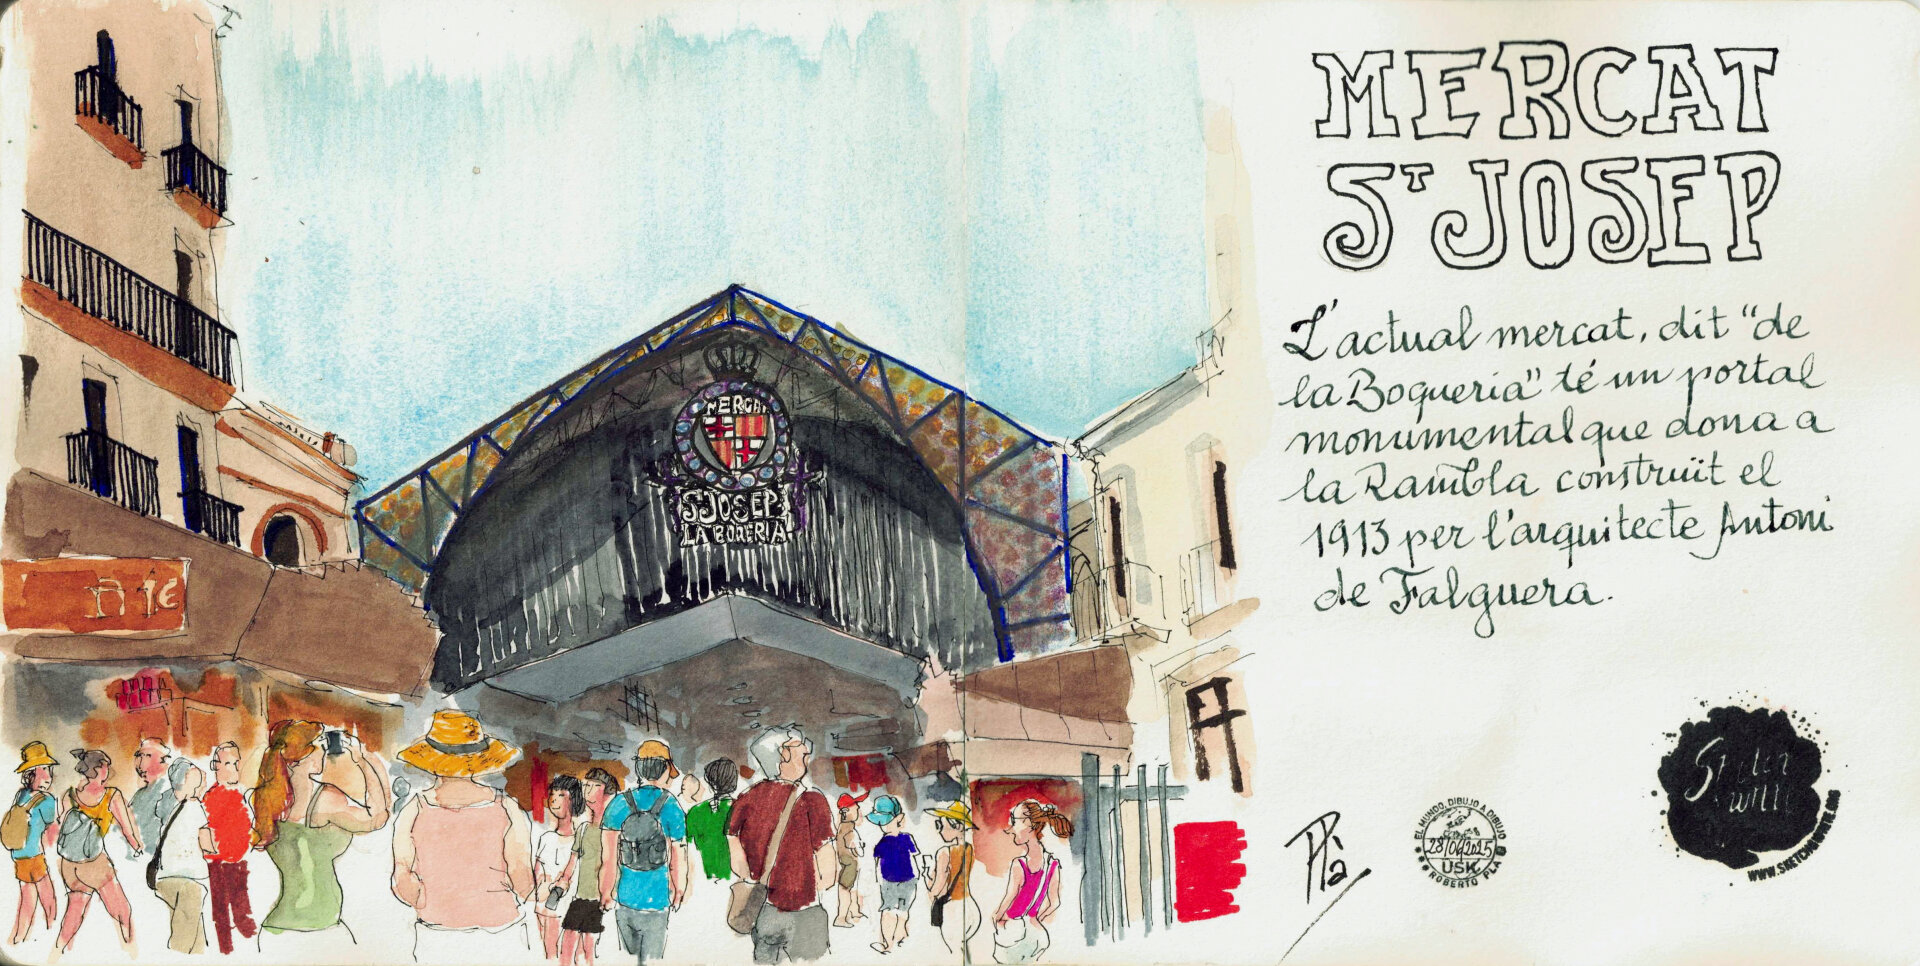 MERCAT
ST JOSEP
L'actual mercat, dit "de
la Boqueria" té un portal
monumental que dona a
la Rambla construït el
1913 per l'arquitecte Antoni
de Falguera.
MERCA
S JOSEP
LA BOQERIA
1€
Plà
EL MUNDO, DIBUJO A DIBUJO
28/06/2025
USK
ROBERTO PLA
Sketch
WWW.SKETCH